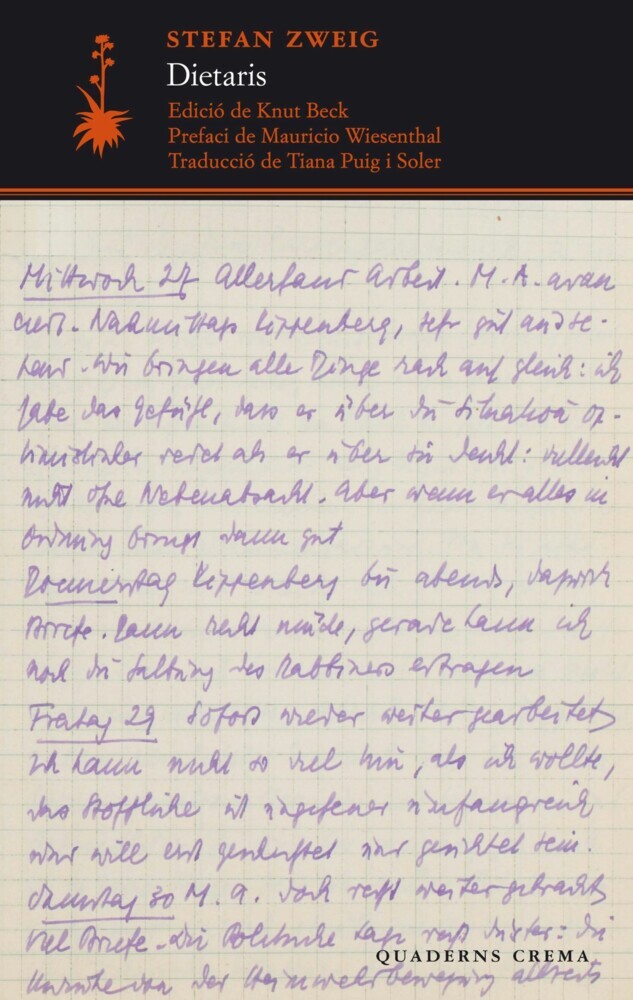 STEFAN ZWEIG
Dietaris
Edició de Knut Beck
Prefaci de Mauricio Wiesenthal
Traducció de Tiana Puig i Soler
Mittwoch 27 Allerhand Arbeit. M. A. avan
ciert. Nachmittags Kippenberg, sehr gut
. Wir bringen alle Dinge rasch auf gleich: ich
habe das Gefühl, dass er über die Situation op-
timistischer redet als er über sie denkt: vielleicht
nicht ohne Nebenabsicht. Aber wenn er alles in
Ordnung bringt dann gut
Donnerstag Kippenberg bis abends, dazwischen
Briefe. Dann recht müde, gerade kann ich
noch die des Rabbiners ertragen
Freitag 29 Sofort wieder weiter gearbeitet
Ich kann nicht so viel hin, als ich wollte,
das Stoffliche ist ungeheuer umfangreich
und will erst und gerichtet sein.
Samstag 30 M. A. doch recht weiter gebracht
viel Briefe. Die Politische Lage recht düster: die
der Heimwehrbewegung
QUADERNS CREMA